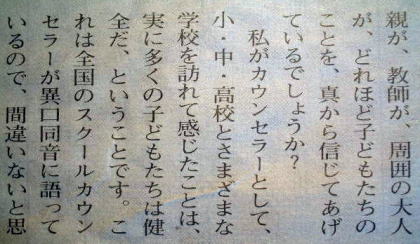 親が、教師が、周囲の大人
が、どれほど子どもたちの
ことを、真から信じてあげ
ているでしょうか?
私がカウンセラーとして、
小・中・高校とさまざまな
学校を訪れて感じたことは、
実に多くの子どもたちは健
全だ、ということです。こ
れは全国のスクールカウン
セラーが異口同音に語って
いるので、間違いないと思